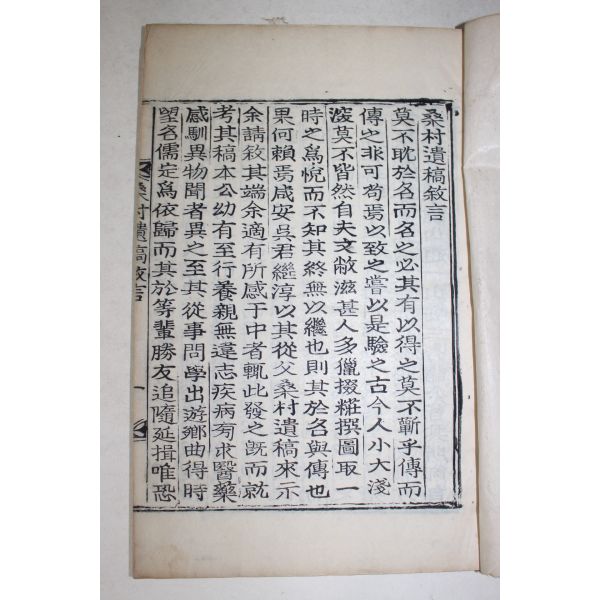 桑村遺稿敘言
莫不眈於名而名之必其有以得之莫不蘄乎傳而
傳之非可苟焉以致之嘗以是驗之古今人小大淺
深莫不皆然自夫文敝滋甚人多獵掇糚撰圖取一
時之爲悅而不知其終無以繼也則其於名與傳也
果何賴焉咸安吳君繼淳以其從父桑村遺稿來示
余請敘其端余適有所感于中者輒此發之旣而就
考其稿本公幼有至行養親無違志疾病有求醫藥
感馴異物聞者異之至其從事問學出遊鄉曲得時
望名儒定爲依歸而其於等輩勝友追隨延揖唯恐
桑村遺稿敘言 一